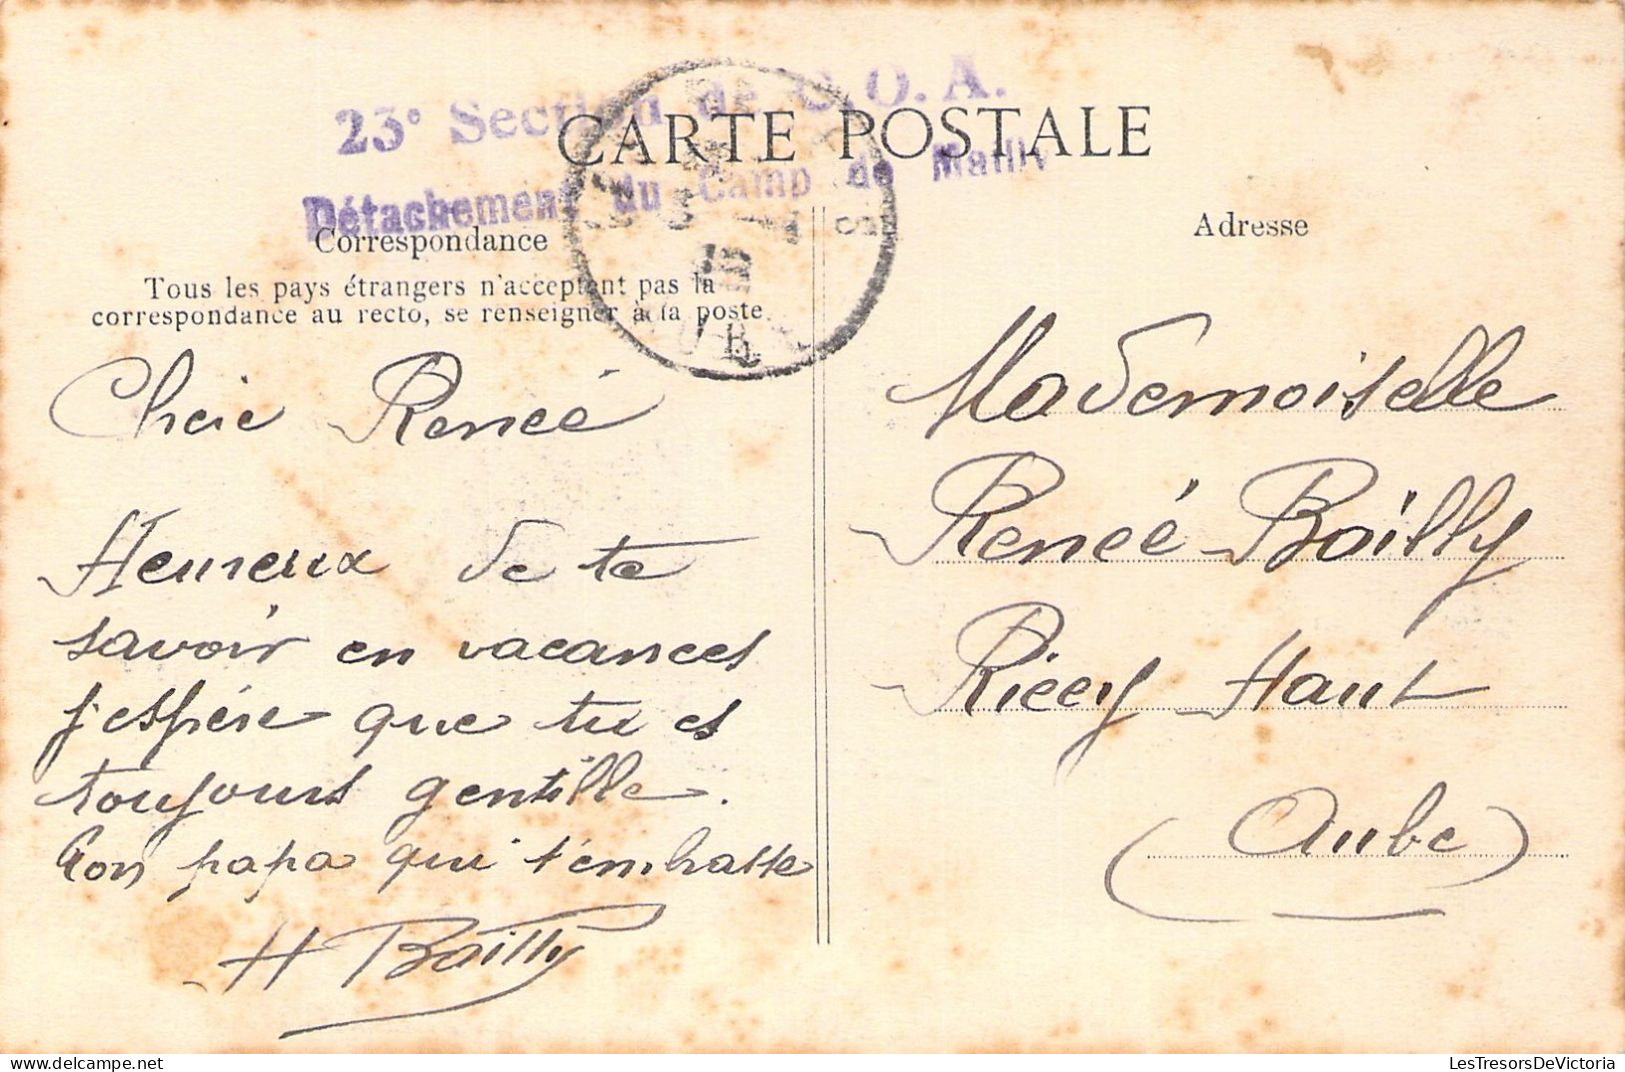 23e Section de C.O.A.
CARTE POSTALE
Détachement du Camp de Mailly
Correspondance
Tous les pays étrangers n'acceptent pas la
correspondance au recto, se renseigner à la poste.
Cherie Renée
Heureux de te
savoir en vacances
j'espére que tu es
toujours gentille.
Ton papa qui t'embrasse
H Bailly
Adresse
Mademoiselle
Renée Bailly
Ricey Haut
(Aube)
LesTresorsDeVictoria